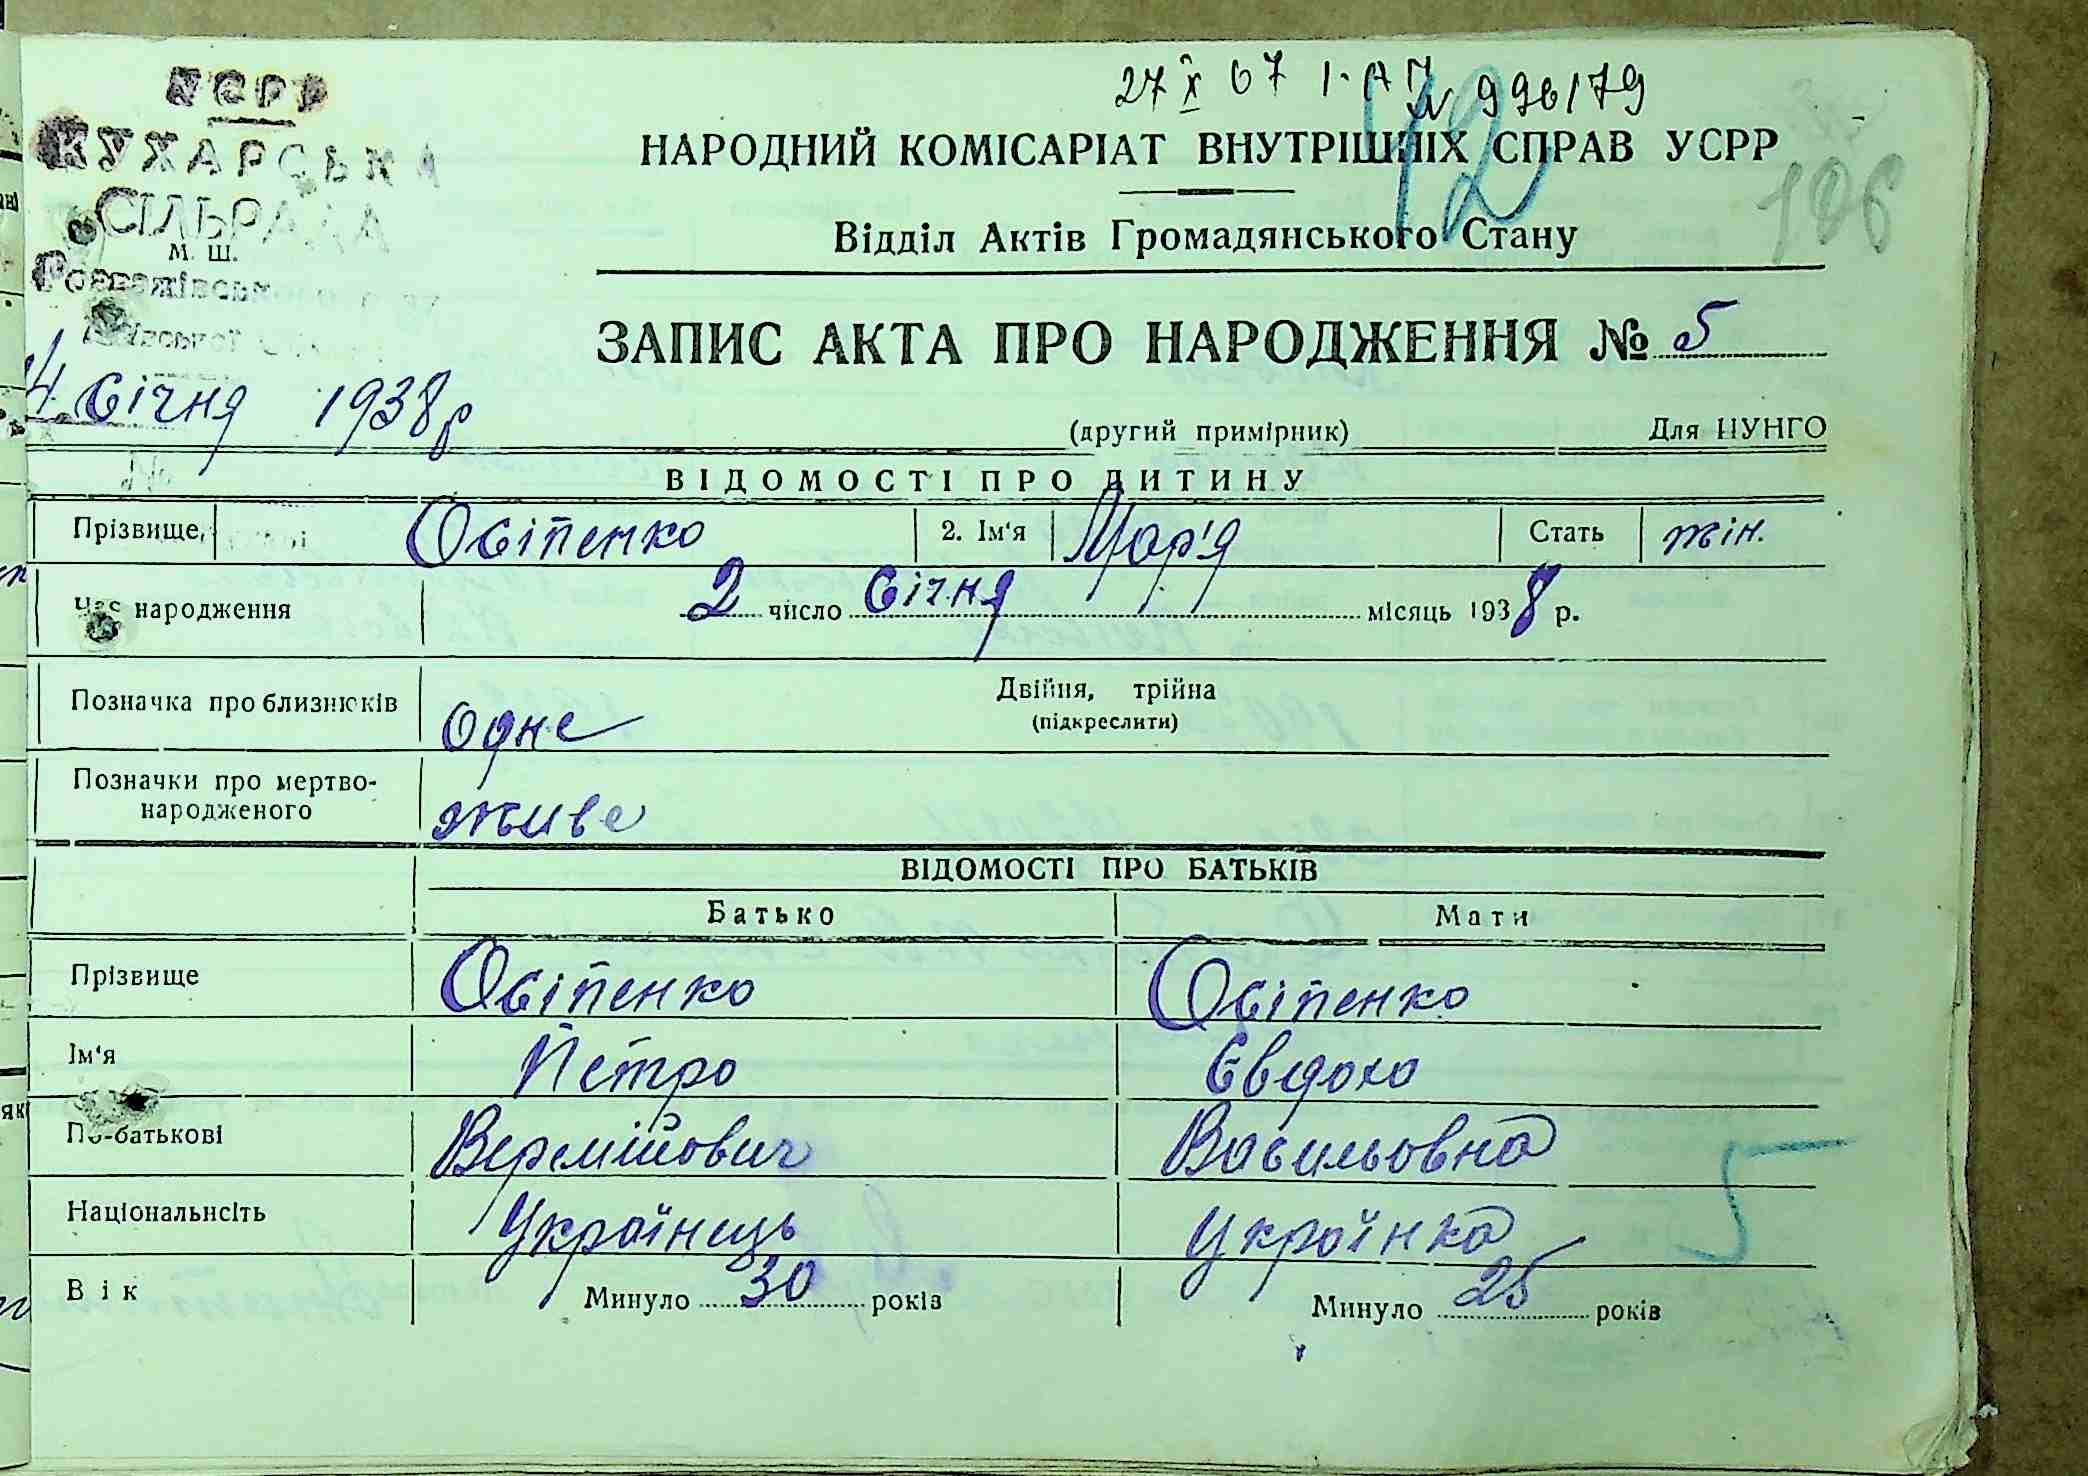 УСРР
КУХАРСЬКА
СІЛЬРАДА
М. Ш.
Розважівськ
27 X 67 І-АП № 996/79
12
106
НАРОДНИЙ КОМІСАРІАТ ВНУТРІШНІХ СПРАВ УСРР
Відділ Актів Громадянського Стану
ЗАПИС АКТА ПРО НАРОДЖЕННЯ № 5
4 січня 1938 р
(другий примірник) Для ЦУНГО
ВІДОМОСТІ ПРО ДИТИНУ
Прізвище, Осіпенко 2. Ім'я Мар'я Стать жін.
Час народження 2 число січня місяць 1938 р.
Позначка про близнюків одне Двійня, трійна
(підкреслити)
Позначки про мертво-
народженого живе
ВІДОМОСТІ ПРО БАТЬКІВ
Батько Мати
Прізвище Осіпенко Осіпенко
Ім'я Петро Євдоха
По-батькові Веремійович Васильовна
Національність Українець Українка
5
Вік Минуло 30 років Минуло 25 років